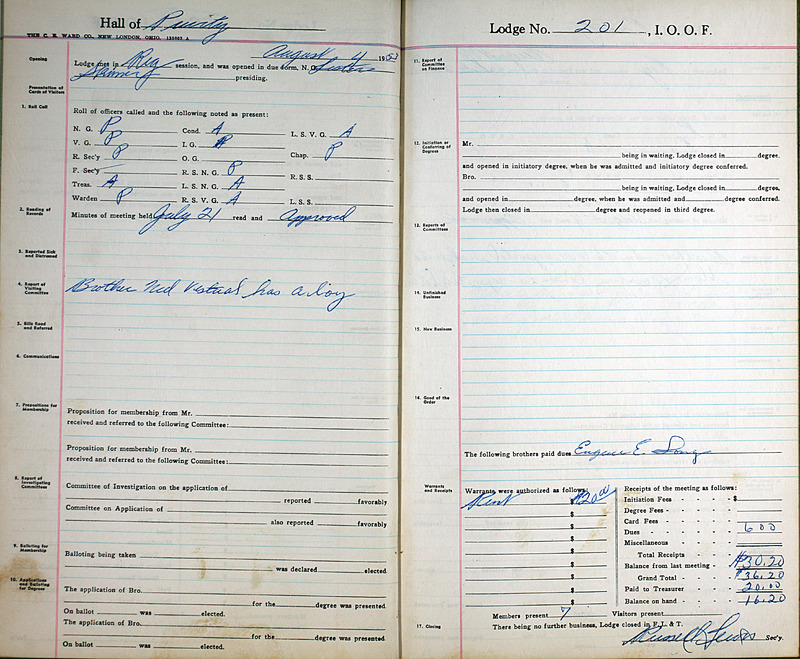 Hall of Purity
THE C. E. WARD CO., NEW LONDON, OHIO.
August 4 19
Opening
Lodge met in Reg session, and was opened in due form, N. G.
presiding.
Presentation of Cards of Visitors
1. Roll Call
Roll of officers called and the following noted as present:
N. G. P Cond. A L. S. V. G. A
V. G. P I. G. P Chap. P
R. Sec'y P O. G. R. S. S.
F. Sec'y R. S. N. G. P
Treas. A L. S. N. G. A L. S. S.
Warden P R. S. V. G. A
2. Reading of Records
Minutes of meeting held July 21 read and Approved
3. Reported Sick and Distressed
4. Report of Visiting Committee
Brother Ned has a boy
5. Bills Read and Referred
6. Communications
7. Propositions for Membership
Proposition for membership from Mr.
received and referred to the following Committee:
Proposition for membership from Mr.
received and referred to the following Committee:
8. Report of Investigating Committees
Committee of Investigation on the application of
reported favorably
Committee on Application of
also reported favorably
9. Balloting for Membership
Balloting being taken
was declared elected.
10. Applications and Balloting for Degrees
The application of Bro.
for the degree was presented.
On ballot was elected.
The application of Bro.
for the degree was presented.
On ballot was elected.
Lodge No. 201, I. O. O. F.
11. Report of Committee on Finance
12. Initiation or Conferring of Degrees
Mr.
being in waiting, Lodge closed in degree.
and opened in initiatory degree, when he was admitted and initiatory degree conferred.
Bro.
being in waiting, Lodge closed in degree,
and opened in degree, when he was admitted and degree conferred.
Lodge then closed in degree and reopened in third degree.
13. Reports of Committees
14. Unfinished Business
15. New Business
16. Good of the Order
The following brothers paid dues Eugene E. Long
Warrants and Receipts
Warrants were authorized as follows:
Rent $20.00
$
$
$
$
$
$
$
$
Receipts of the meeting as follows:
Initiation Fees - - - - $
Degree Fees - - - -
Card Fees - - - -
Dues - - - - 6 00
Miscellaneous - - - -
Total Receipts - -
Balance from last meeting - $30.20
Grand Total - - - $36.20
Paid to Treasurer - - 20.00
Balance on hand - - - 16.20
Members present 7 Visitors present
17. Closing
There being no further business, Lodge closed in F. L. & T.
Russell Lewis Sec'y.